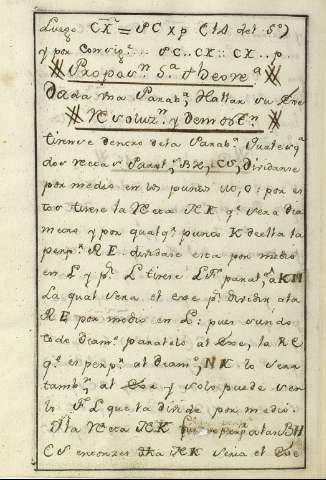 Luego CX² = PC x p (
y por consig.e PC.. CX:: CX.. p.
Propos.n 5.a theore.a
Dada una Parab.a, Hallar su Exe
Resoluz.n y Demost.n
tirense dentro de la Parab.a
dos rectas Paral.s BH, CS, dividanse
por medio en los puntos N, O: por es
tos tirese la Recta NK q.e sera dia
metro y por qualq.a punto K de ella la
perp.r RE: dividase esta por medio
en L y p.r L tirese LF paral.a a KN
La qual sera el exe p.r dividir a la
RE por medio en L: pues siendo
todo diam.o paralelo al Exe, la RE
q.e es perp.r al diam.o NK lo sera
tamb.n al Exe y solo puede ser
lo FL que la divide por medio.
la Recta NK perp.r a las BH
CS entonzes NK seria el Exe